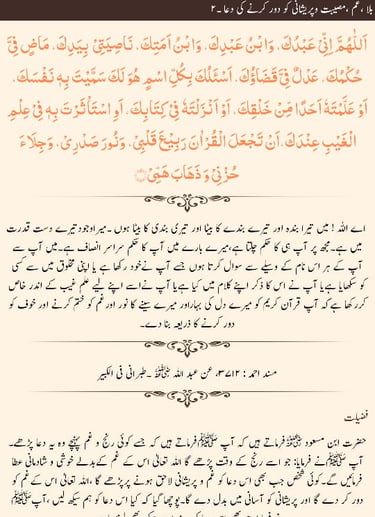 بلا ،غم ،مصیبت و پریشانی کو دور کرنے کی دعا - ۲
اَللّٰهُمَّ اِنِّیْ عَبْدُكَ، وَابْنُ عَبْدِكَ، وَابْنُ اَمَتِكَ، نَاصِیَتِیْ بِیَدِكَ، مَاضٍ فِیَّ
حُكْمُكَ، عَدْلٌ فِیَّ قَضَاؤُكَ، اَسْئَلُكَ بِكُلِّ اسْمٍ هُوَ لَكَ سَمَّیْتَ بِهٖ نَفْسَكَ،
اَوْ عَلَّمْتَهٗ اَحَدًا مِّنْ خَلْقِكَ، اَوْ اَنْزَلْتَهٗ فِیْ كِتَابِكَ، اَوِ اسْتَأْثَرْتَ بِهٖ فِیْ عِلْمِ
الْغَیْبِ عِنْدَكَ، اَنْ تَجْعَلَ الْقُرْاٰنَ رَبِیْعَ قَلْبِیْ، وَنُوْرَ صَدْرِیْ، وَجِلَاءَ
حُزْنِیْ وَذَهَابَ هَمِّیْ
اے اللہ ! میں تیرا بندہ اور تیرے بندے کا بیٹا اور تیری بندی کا بیٹا ہوں ۔میرا وجود تیرے دست قدرت
میں ہے۔مجھ پر آپ ہی کا حکم چلتا ہے،میرے بارے میں آپ کا حکم سراسر انصاف ہے۔میں آپ سے
آپ کے ہر اس نام کے وسیلے سے سوال کرتا ہوں جسے آپ نے خود رکھا ہے یا اپنی مخلوق میں سے کسی
کو سکھایا ہے یا آپ نے اس کا ذکر اپنے کلام میں کیا ہے یا آپ نے اسے اپنے لیے علم غیب کے اندر خاص
کر رکھا ہے کہ آپ قرآن کریم کو میرے دل کی بہار اور میرے سینے کا نور اور غم کو ختم کرنے اور خوف کو
دور کرنے کا ذریعہ بنا دے۔
مسند احمد : ۳۷۱۲، عن عبد اللہ ﷺ ۔طبرانی فی الکبیر
فضیلت
حضرت ابن مسعود ﷺ فرماتے ہیں کہ آپ ﷺ فرماتے ہیں کہ جسے کوئی رنج و غم پہنچے وہ یہ دعا پڑھے۔
آپ ﷺ نے فرمایا: جو اسے رنج کے وقت پڑھے گا اللہ تعالیٰ اس کے غم کے بدلے خوشی و شادمانی عطا
فرمائیں گے۔کوئی شخص جب بھی اس دعا کو غم و پریشانی لاحق ہونے پر پڑھے گا، اللہ تعالیٰ اس کے غم کو
دور کر دے گا اور پریشانی کو آسانی میں بدل دے گا۔پوچھا گیا کہ کیا اس دعا کو ہم سیکھ لیں، آپ ﷺ